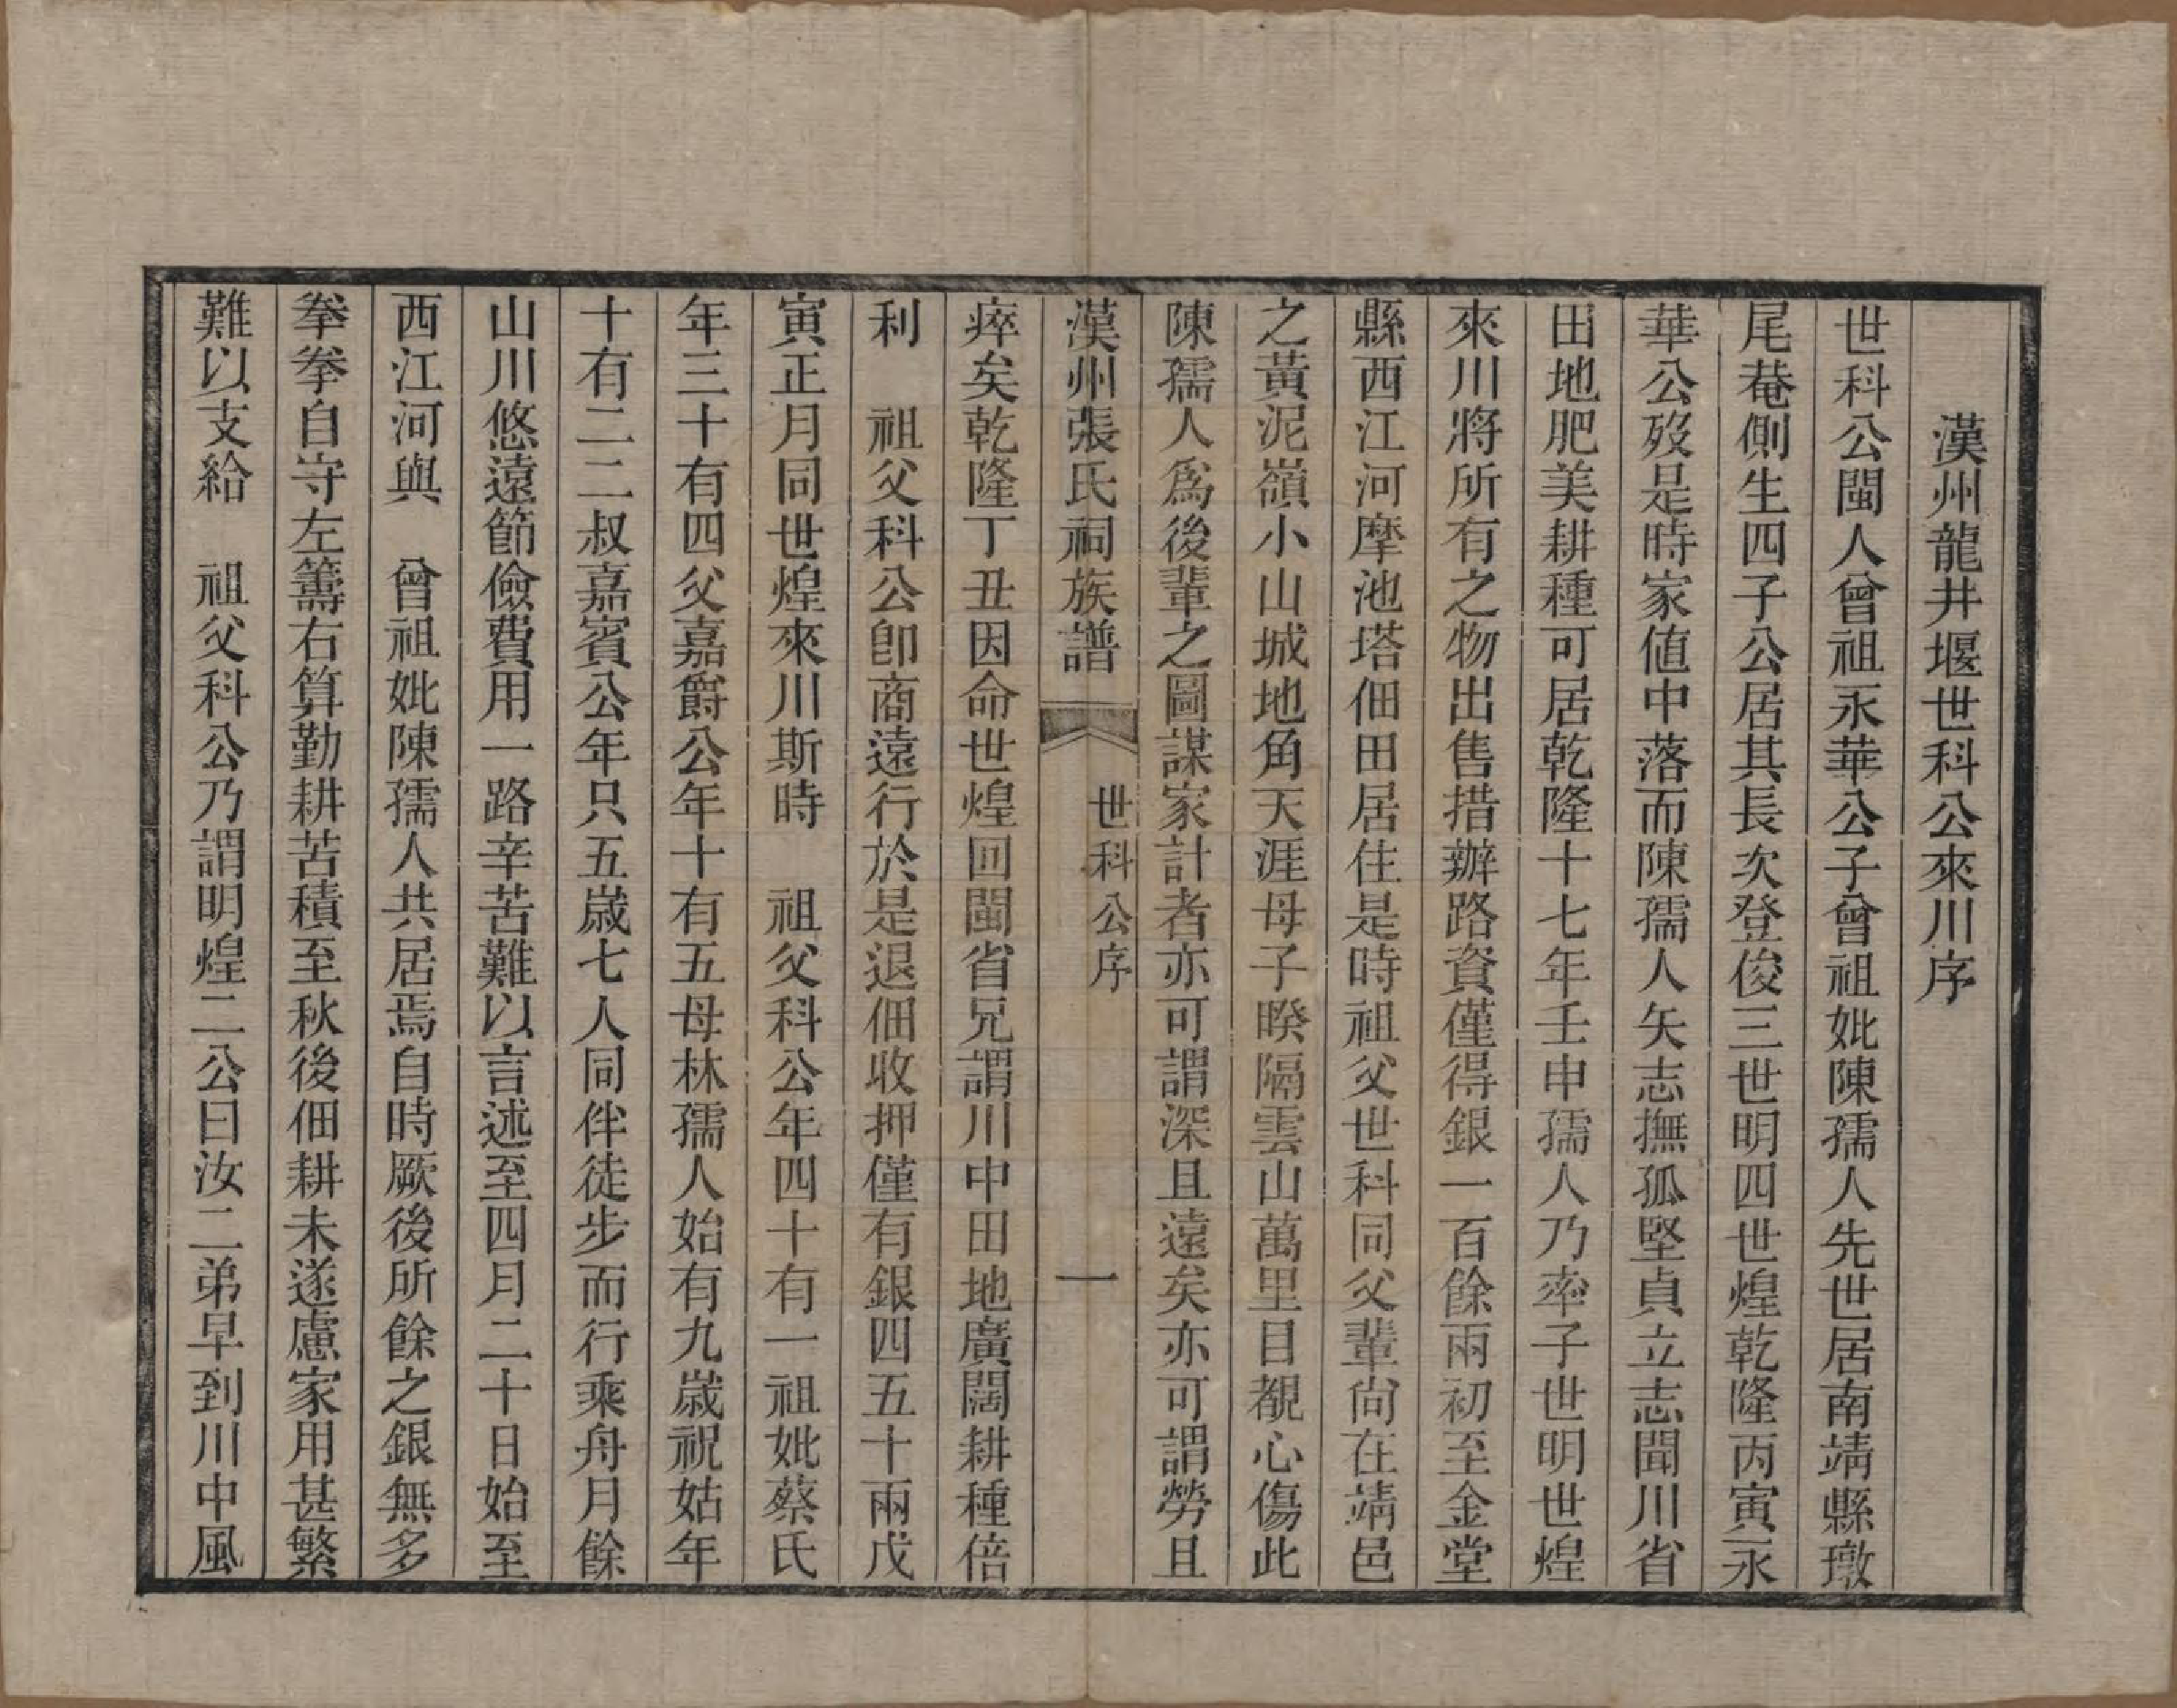 漢州龍井堰世科公來川序
世科公閩人曾祖永華公子曾祖妣陳孺人先世居南靖縣璥
尾菴側生四子公居其長次登俊三世明四世煌乾隆丙寅永
華公歿是時家值中落而陳孺人矢志撫孤堅貞立志聞川省
田地肥美耕種可居乾隆十七年壬申孺人乃率子世明世煌
來川將所有之物出售措辦路資僅得銀一百餘兩初至金堂
縣西江河摩池塔佃田居住是時祖父世科同父輩尙在靖邑
之黃泥嶺小山城地角天涯母子暌隔雲山萬里目覩心傷此
陳孺人爲後輩之圖謀家計者亦可謂深且遠矣亦可謂勞且
漢州張氏祠族譜 世科公序 一
瘁矣乾隆丁丑因命世煌回閩省兄謂川中田地廣闊耕種倍
利 祖父科公卽商遠行於是退佃收押僅有銀四五十兩戊
寅正月同世煌來川斯時 祖父科公年四十有一祖妣蔡氏
年三十有四父嘉爵公年十有五母林孺人始有九歲祝姑年
十有二二叔嘉賓公年只五歲七人同伴徒步而行乘舟月餘
山川悠遠節儉費用一路辛苦難以言述至四月二十日始至
西江河與 曾祖妣陳孺人共居焉自時厥後所餘之銀無多
拳拳自守左籌右算勤耕苦積至秋後佃耕未遂慮家用甚繁
難以支給 祖父科公乃謂明煌二公曰汝二弟早到川中風